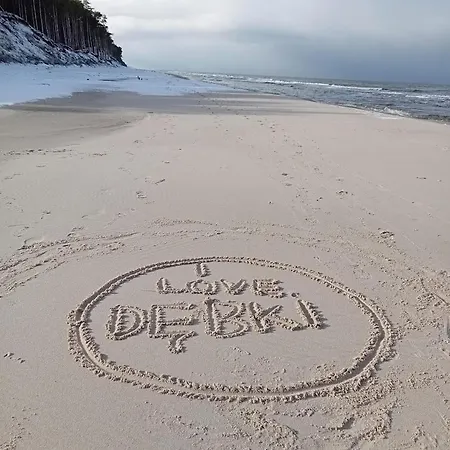 I
LOVE
DĘBKI